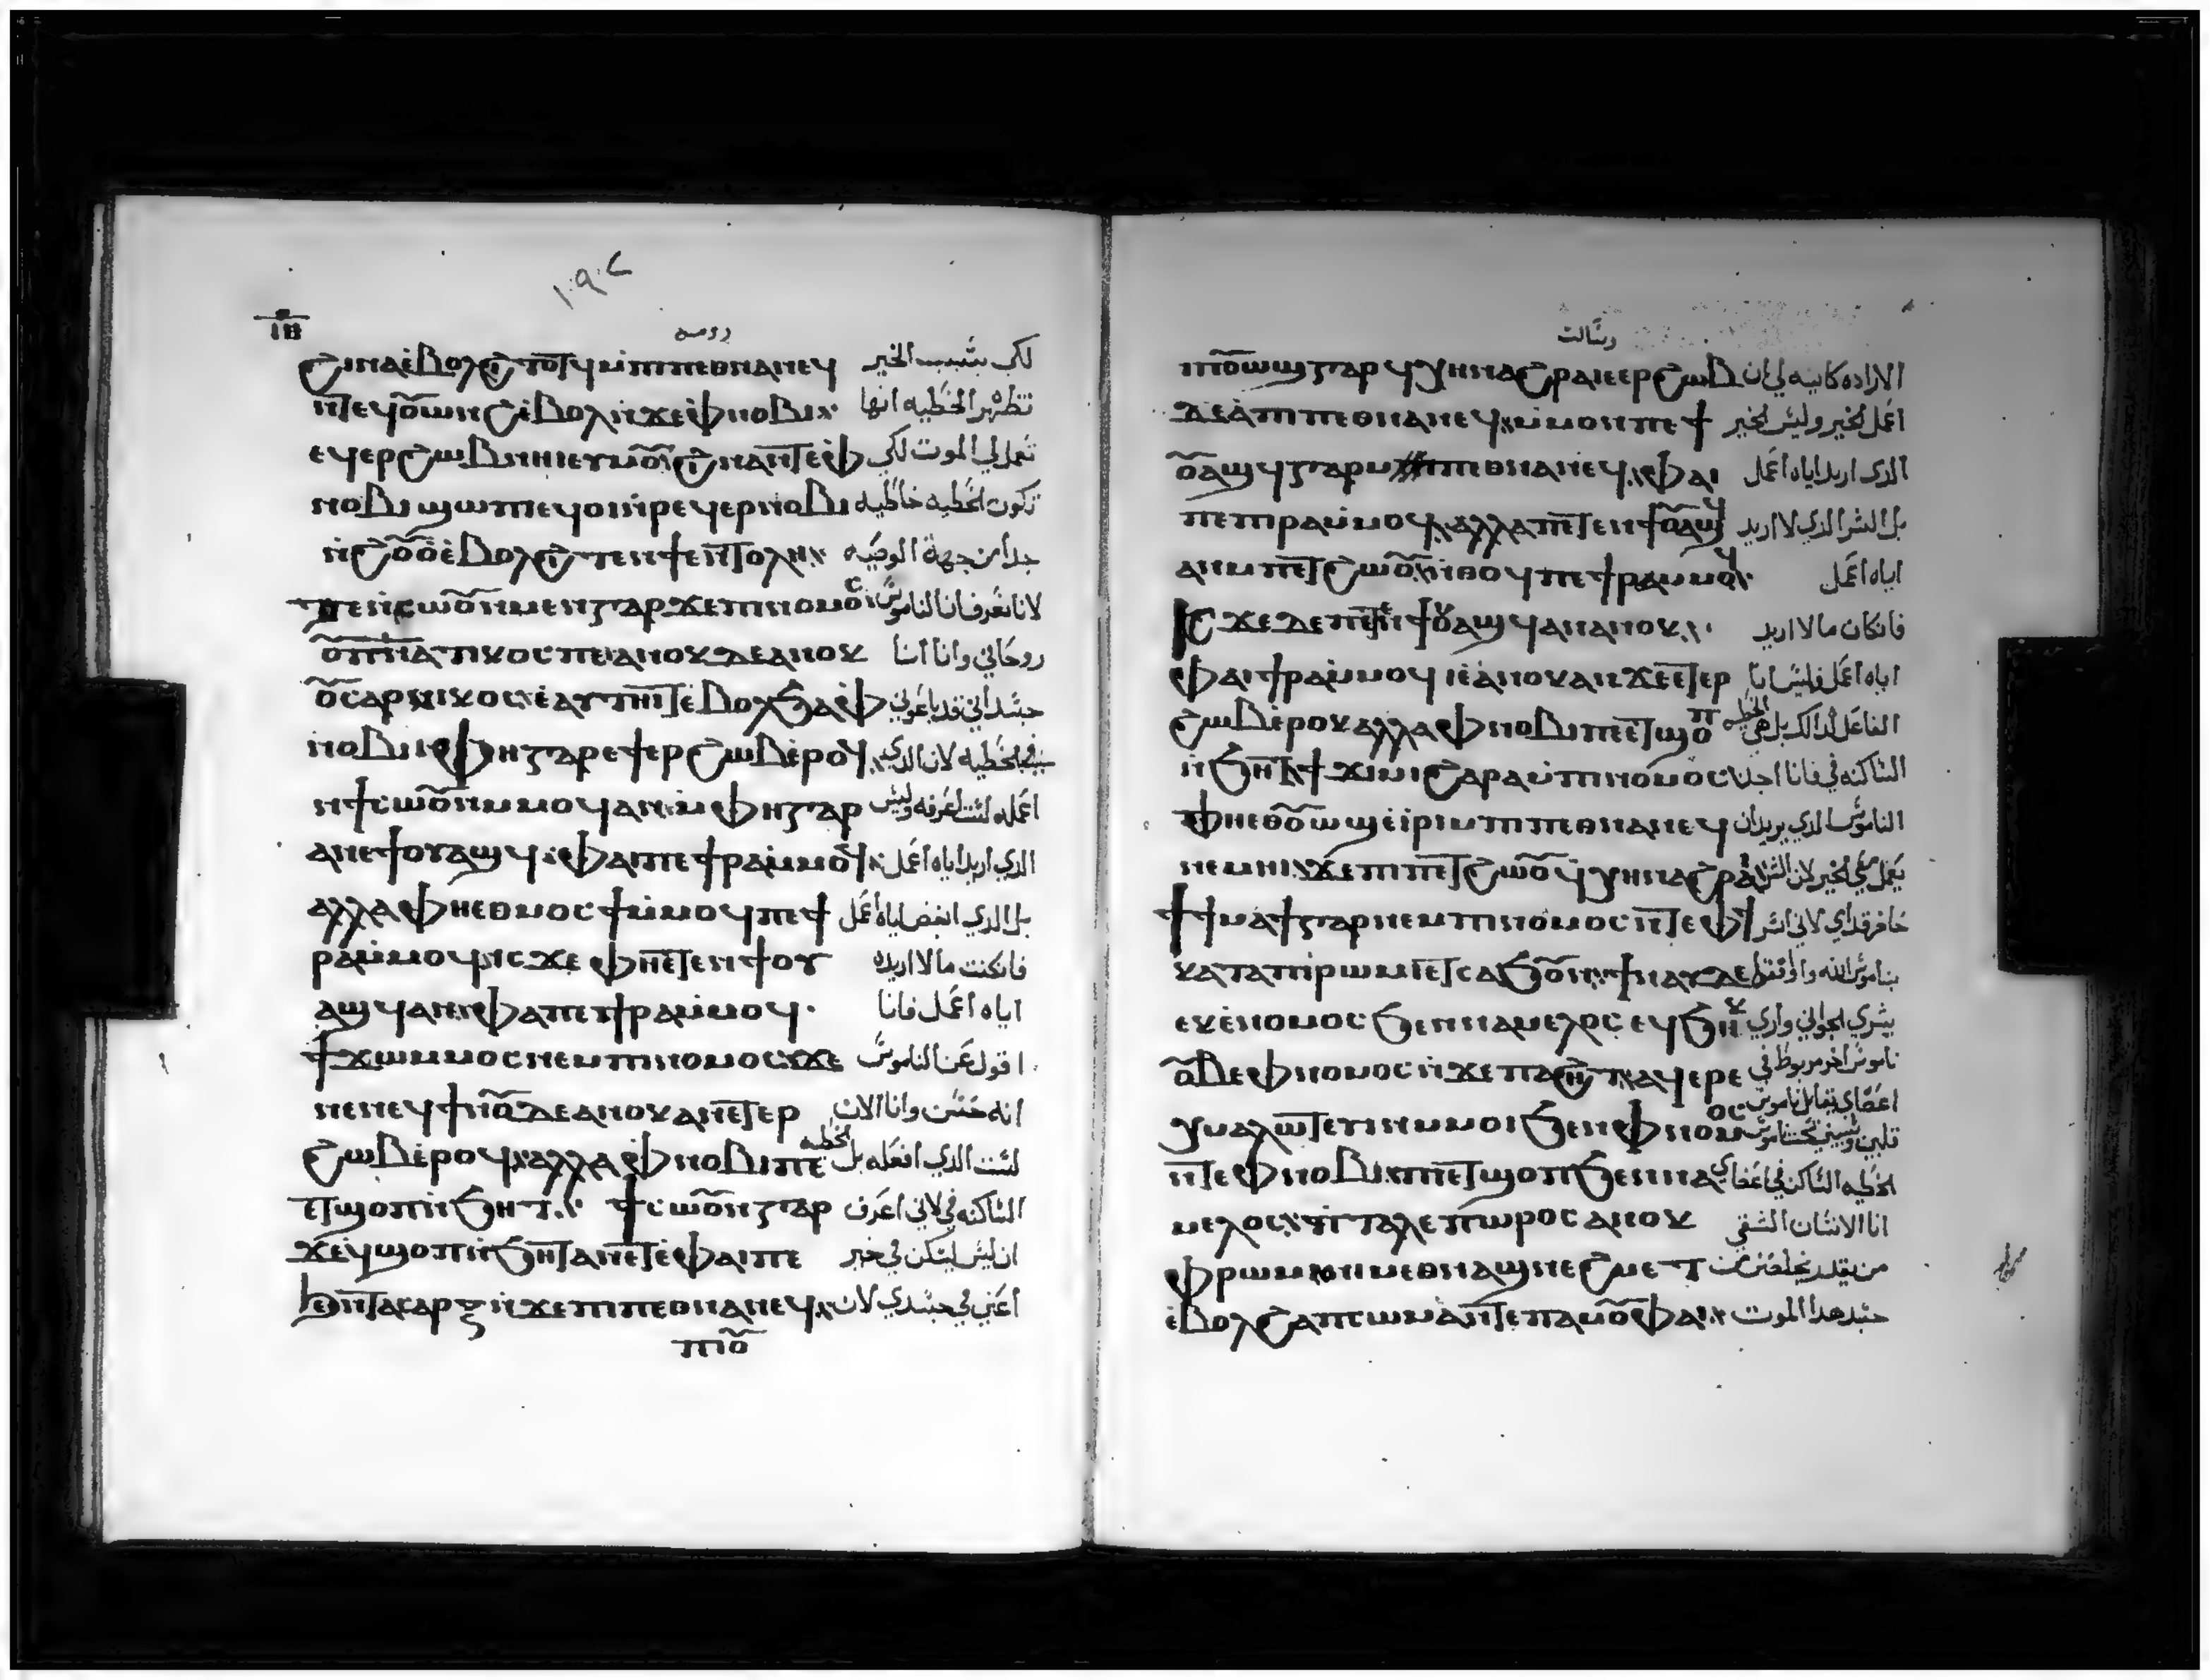 ١٠٩٠٢
ⲓⲃ
رومـيه
ϩⲓⲛⲁ ⲉⲃⲟⲗϩⲓⲧⲟⲧϥ ⲙ̇ⲡⲓⲡⲉⲑⲛⲁⲛⲉϥ لكى بسبب الخير
ⲛ̇ⲧⲉϥⲟⲩⲱⲛϩ ⲉ̇ⲃⲟⲗ ⲛ̇ϫⲉ ⲫⲛⲟⲃⲓ تظهر الخطيه انها
ⲉϥⲉⲣϩⲱⲃ ⲛⲏⲓ ⲉⲩⲙⲟⲩ ϩⲓⲛⲁ ⲛ̇ⲧⲉ ⲫ تعمل لي الموت لكي
ⲛⲟⲃⲓ ϣⲱⲡⲓ ⲉϥⲟⲓ ⲛ̇ⲣⲉϥⲉⲣⲛⲟⲃⲓ تكون الخطيه خاطيه
ⲛ̇ϩⲟⲩⲟ̇ ⲉ̇ⲃⲟⲗϩⲓⲧⲉⲛ ϯⲉⲛⲧⲟⲗⲏ جدا من جهة الوصيه
ⲧⲉⲛⲥⲱⲟⲩⲛ ⲙⲉⲛ ⲅⲁⲣ ϫⲉ ⲡⲓⲛⲟⲙⲟⲥ لانا نعرف ان الناموس
ⲟⲩⲡ̅ⲛ̅ⲁ̅ⲧⲓⲕⲟⲥ ⲡⲉ ⲁⲛⲟⲕ ⲇⲉ ⲁⲛⲟⲕ روحاني وانا انا
ⲟⲩⲥⲁⲣⲕⲓⲕⲟⲥ ⲉ̇ⲁⲩⲧⲏⲓⲧ ⲉ̇ⲃⲟⲗ ϧⲁ ⲫ جسداني قد باعوني
ⲛⲟⲃⲓ ⲫⲏ ⲅⲁⲣ ⲉϯⲉⲣϩⲱⲃ ⲉ̇ⲣⲟϥ الخطيه لان الدي
ⲛ̇ϯⲥⲱⲟⲩⲛ ⲙ̇ⲙⲟϥ ⲁⲛ ⲫⲏ ⲅⲁⲣ اعمله لست اعرفه وليس
ⲁⲛ ⲉϯⲟⲩⲁϣϥ ⲫⲁⲓ ⲡⲉϯⲣⲁ ⲙ̇ⲙⲟϥ الدي اريد اياه اعمل
ⲁⲗⲗⲁ ⲫⲏ ⲉⲑⲙⲟⲥϯ ⲙ̇ⲙⲟϥ ⲡⲉϯ بل الدي ابغض اياه اعمل
ⲣⲁ ⲙ̇ⲙⲟϥ ⲓⲥϫⲉ ⲫⲏ ⲉⲧⲉⲛϯⲟⲩ فان كنت ما لا اريده
ⲁϣϥ ⲁⲛ ⲫⲁⲓ ⲡⲉϯⲣⲁ ⲙ̇ⲙⲟϥ اياه اعمل فانا
ϯϫⲱ ⲙ̇ⲙⲟⲥ ⲛⲉⲙ ⲡⲓⲛⲟⲙⲟⲥ ϫⲉ اقول عن الناموس
ⲛⲉⲛⲉϥ ϯⲛⲟⲩ ⲇⲉ ⲁⲛⲟⲕ ⲁⲛ ⲉⲧⲉⲣ انه حسن وانا الان
ϩⲱⲃ ⲉ̇ⲣⲟϥ ⲁⲗⲗⲁ ⲫⲛⲟⲃⲓ ⲡⲉ لست الدي افعله بل الخطيه
ⲉⲧϣⲟⲡ ⲛ̇ϧⲏⲧ ϯⲥⲱⲟⲩⲛ ⲅⲁⲣ الساكنه في لاني اعرف
ϫⲉ ϥϣⲟⲡ ⲛ̇ϧⲏⲧ ⲁⲛ ⲉⲧⲉ ⲫⲁⲓ ⲡⲉ ان ليس يسكن في خير
ϧⲉⲛ ⲧⲁⲥⲁⲣⲝ ⲛ̇ϫⲉ ⲡⲓⲡⲉⲑⲛⲁⲛⲉϥ اعني في جسدي لان
ⲡⲓⲟⲩ
رسالت
ⲡⲓⲟⲩⲱϣ ⲅⲁⲣ ϥⲭⲏ ⲛⲁϩⲣⲁⲓ ⲉⲉⲣϩⲱⲃ الاراده كاينه لي ان
ⲇⲉ ⲁ̇ⲡⲓⲡⲉⲑⲛⲁⲛⲉϥ ⲙ̇ⲙⲟⲛ ⲡⲉϯ اعمل الخير وليس الخير
ⲟⲩⲁϣϥ ⲅⲁⲣ ⲙ̇ⲡⲉⲑⲛⲁⲛⲉϥ ⲫⲁⲓ الدي اريد اياه اعمل
ⲡⲉⲧⲣⲁ ⲙ̇ⲙⲟϥ ⲁⲗⲗⲁ ⲡⲉⲧⲉⲛϯⲟⲩⲁϣϥ بل الشر الدي لا اريد
ⲁⲛ ⲙ̇ⲡⲉⲧϩⲱⲟⲩ ⲛ̇ⲑⲟϥ ⲡⲉϯⲣⲁ ⲙ̇ⲙⲟϥ اياه اعمل
ⲓⲥϫⲉ ⲇⲉ ⲡⲉⲧⲉⲛϯⲟⲩⲁϣϥ ⲁⲛ ⲁⲛⲟⲕ فان كان ما لا اريد
ⲫⲁⲓ ϯⲣⲁ ⲙ̇ⲙⲟϥ ⲓⲉ ⲁ̇ⲛⲟⲕ ⲁⲛ ϫⲉ ⲉⲧⲉⲣ اياه اعمل فليس انا
ϩⲱⲃ ⲉ̇ⲣⲟϥ ⲁⲗⲗⲁ ⲫⲛⲟⲃⲓ ⲡⲉⲧϣⲟⲡ الفاعل لدالك بل هي الخطيه
ⲛ̇ϧⲏⲧ ϯϫⲓⲙⲓ ϩⲁⲣⲁ ⲙ̇ⲡⲓⲛⲟⲙⲟⲥ الساكنه في فانا اجد
ⲫⲏ ⲉⲑⲟⲩⲱϣ ⲉ̇ⲓⲣⲓ ⲙ̇ⲡⲓⲡⲉⲑⲛⲁⲛⲉϥ الناموس الدي يريد ان
ⲛⲉⲙⲏⲓ ϫⲉ ⲡⲓⲡⲉⲧϩⲱⲟⲩ ϥⲭⲏ ⲛⲁϩⲣⲁⲓ يعمل معي الخير لان الشر
ϯϯⲙⲁϯ ⲅⲁⲣ ⲛⲉⲙ ⲡⲓⲛⲟⲙⲟⲥ ⲛ̇ⲧⲉ ⲫϯ حاضر قدامي لاني اسر
ⲕⲁⲧⲁ ⲡⲓⲣⲱⲙⲓ ⲉⲧⲥⲁϧⲟⲩⲛ ϯⲛⲁⲩ ⲇⲉ بناموس الله
ⲉⲕⲉⲛⲟⲙⲟⲥ ϧⲉⲛ ⲛⲁⲙⲉⲗⲟⲥ ⲉϥϯ بشري الجواني واري
ⲟⲩⲃⲉ ⲫⲛⲟⲙⲟⲥ ⲛ̇ϫⲉ ⲡⲁϩⲏⲧ ⲁϥⲉⲣⲉ ناموس اخر مربوط في
ⲭⲙⲁⲗⲱⲧⲉⲩⲓⲛ ⲙ̇ⲙⲟⲓ ϧⲉⲛ ⲫⲛⲟⲙⲟⲥ اعضاي يقاتل ناموس
ⲛ̇ⲧⲉ ⲫⲛⲟⲃⲓ ⲡⲉⲧϣⲟⲡ ϧⲉⲛ ⲛⲁ الخطيه الساكن في اعضاي
ⲙⲉⲗⲟⲥ ⲧⲁⲗⲉⲡⲱⲣⲟⲥ ⲁⲛⲟⲕ انا الانسان الشقي
ⲫⲣⲱⲙⲓ ⲛⲓⲙ ⲉⲑⲛⲁϣⲛⲉϩⲙⲉⲧ من يقدر يخلصني من
ⲉ̇ⲃⲟⲗϩⲁ ⲡⲥⲱⲙⲁ ⲛ̇ⲧⲉ ⲡⲁⲓⲙⲟⲩ ⲫⲁⲓ جسد هدا الموت